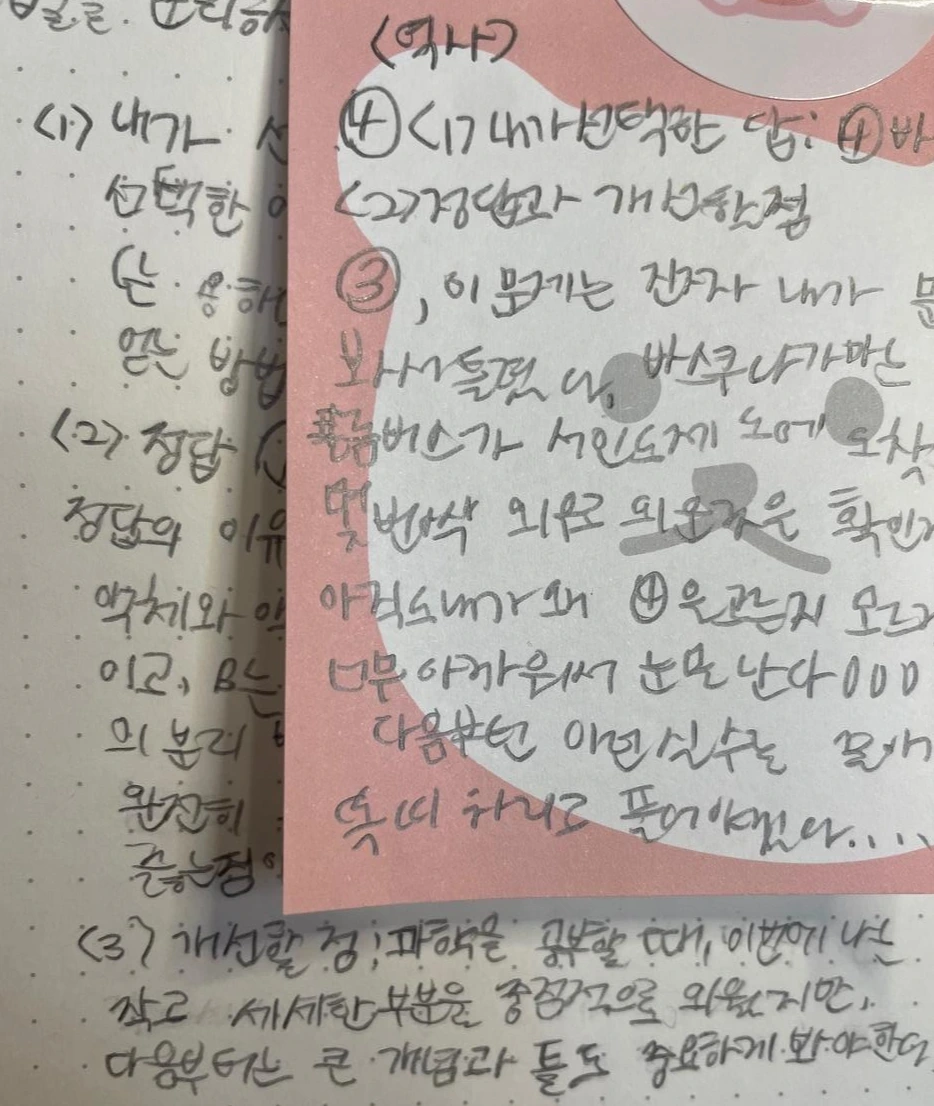 <역사>
④ <1> 내가 선택한 답: ④ 바
<2> 정답과 개선할점
③, 이 문제는 진짜 내가 문
보사 틀렸다. 바스쿠 다 가마는
콜롬버스가 서인도제도에 도착
몇번씩 외우고 외운것은 확인
아직도 내가 왜 ④은 고른지 모르
너무 아까워서 눈물 난다
다음부턴 이런실수는
똑띠 차리고 풀어야겠다....
<1> 내가 선
선택한 이
는 용해
얻는 방법
<2> 정답
정답의 이유
액체와 액
이고, B는
의 분리
완전히
<3> 개선할 점; 과학을 공부할 때, 이번에 나는
작고 세세한 부분을 중점적으로 외웠지만,
다음부터는 큰 개념과 틀도 중요하게 봐야한다